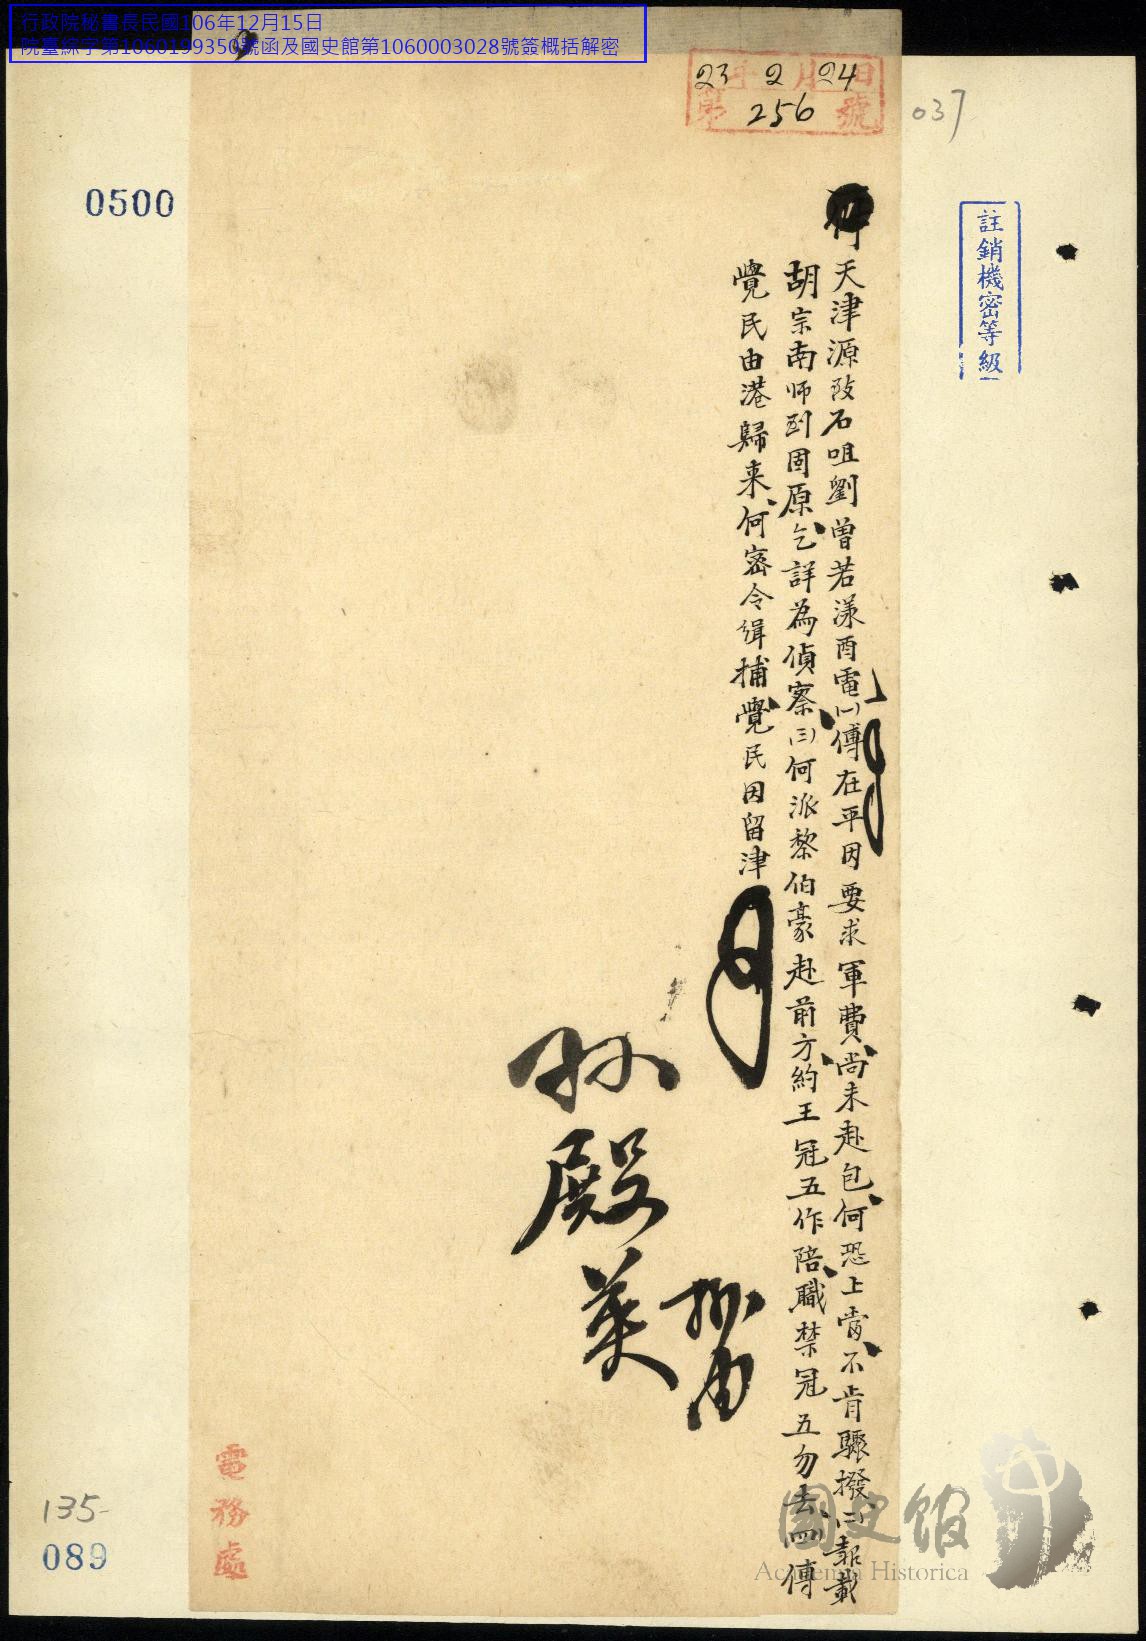 行政院秘書長民國106年12月15日
院臺綜字第1060199350號函及國史館第1060003028號簽概括解密
23年2月24日
第256號
037
0500
註銷機密等級
天津源致石咀劉曾若漾酉電(一)傅在平因要求軍費、尚未赴包、何恐上當、不肯驟撥(二)報載
胡宗南師到固原、乞詳為偵察、(三)何派黎伯豪赴前方、約王冠五作陪、職禁冠五勿去、(四)傳
覺民由港歸來、何密令緝捕、覺民因留津
孫殿英
電務處
135-
089
國史館
Academia Historica